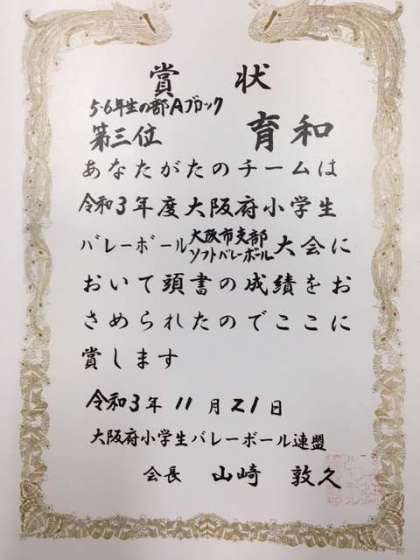 賞状
5・6年生の部・Aブロック
第三位 育和
あなたがたのチームは
令和3年度大阪府小学生
バレーボール大阪市支部ソフトバレーボール大会に
おいて頭書の成績をお
さめられたのでここに
賞します
令和3年11月21日
大阪府小学生バレーボール連盟
会長 山崎 敦久